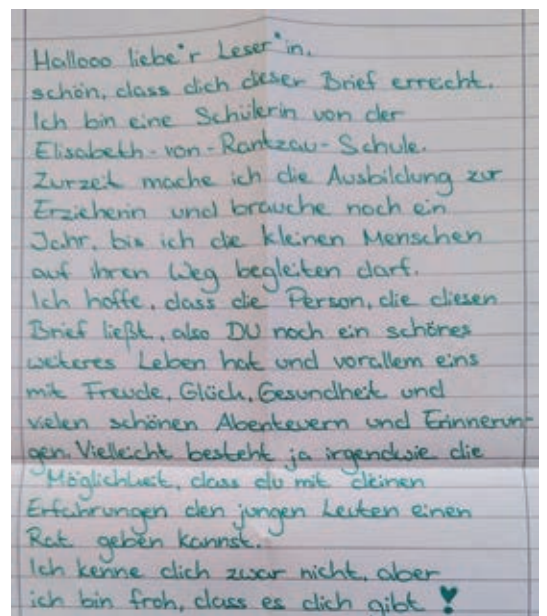 Hallooo liebe*r Leser*in,
schön, dass dich dieser Brief erreicht.
Ich bin eine Schülerin von der
Elisabeth-von-Rantzau-Schule.
Zurzeit mache ich die Ausbildung zur
Erzieherin und brauche noch ein
Jahr, bis ich die kleinen Menschen
auf ihren Weg begleiten darf.
Ich hoffe, dass die Person, die diesen
Brief ließt, also DU noch ein schönes
weiteres Leben hat und vorallem eins
mit Freude, Glück, Gesundheit und
vielen schönen Abenteuern und Erinnerun-
gen. Vielleicht besteht ja irgendwie die
Möglichkeit, dass du mit deinen
Erfahrungen den jungen Leuten einen
Rat geben kannst.
Ich kenne dich zwar nicht, aber
ich bin froh, dass es dich gibt ♥